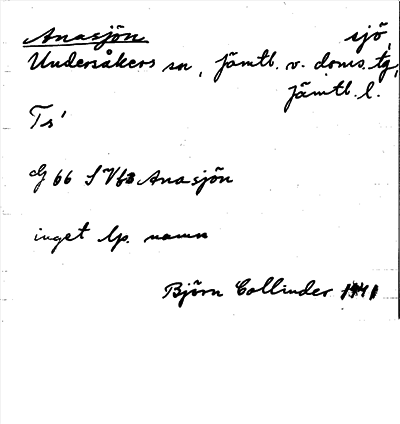 Anasjön sjö,
Undersåkers sn, Jämtl. v. doms. tg,
Jämtl. l.
Ts'
G 66 S Anasjön
inget lp. namn
Björn Collinder 1941